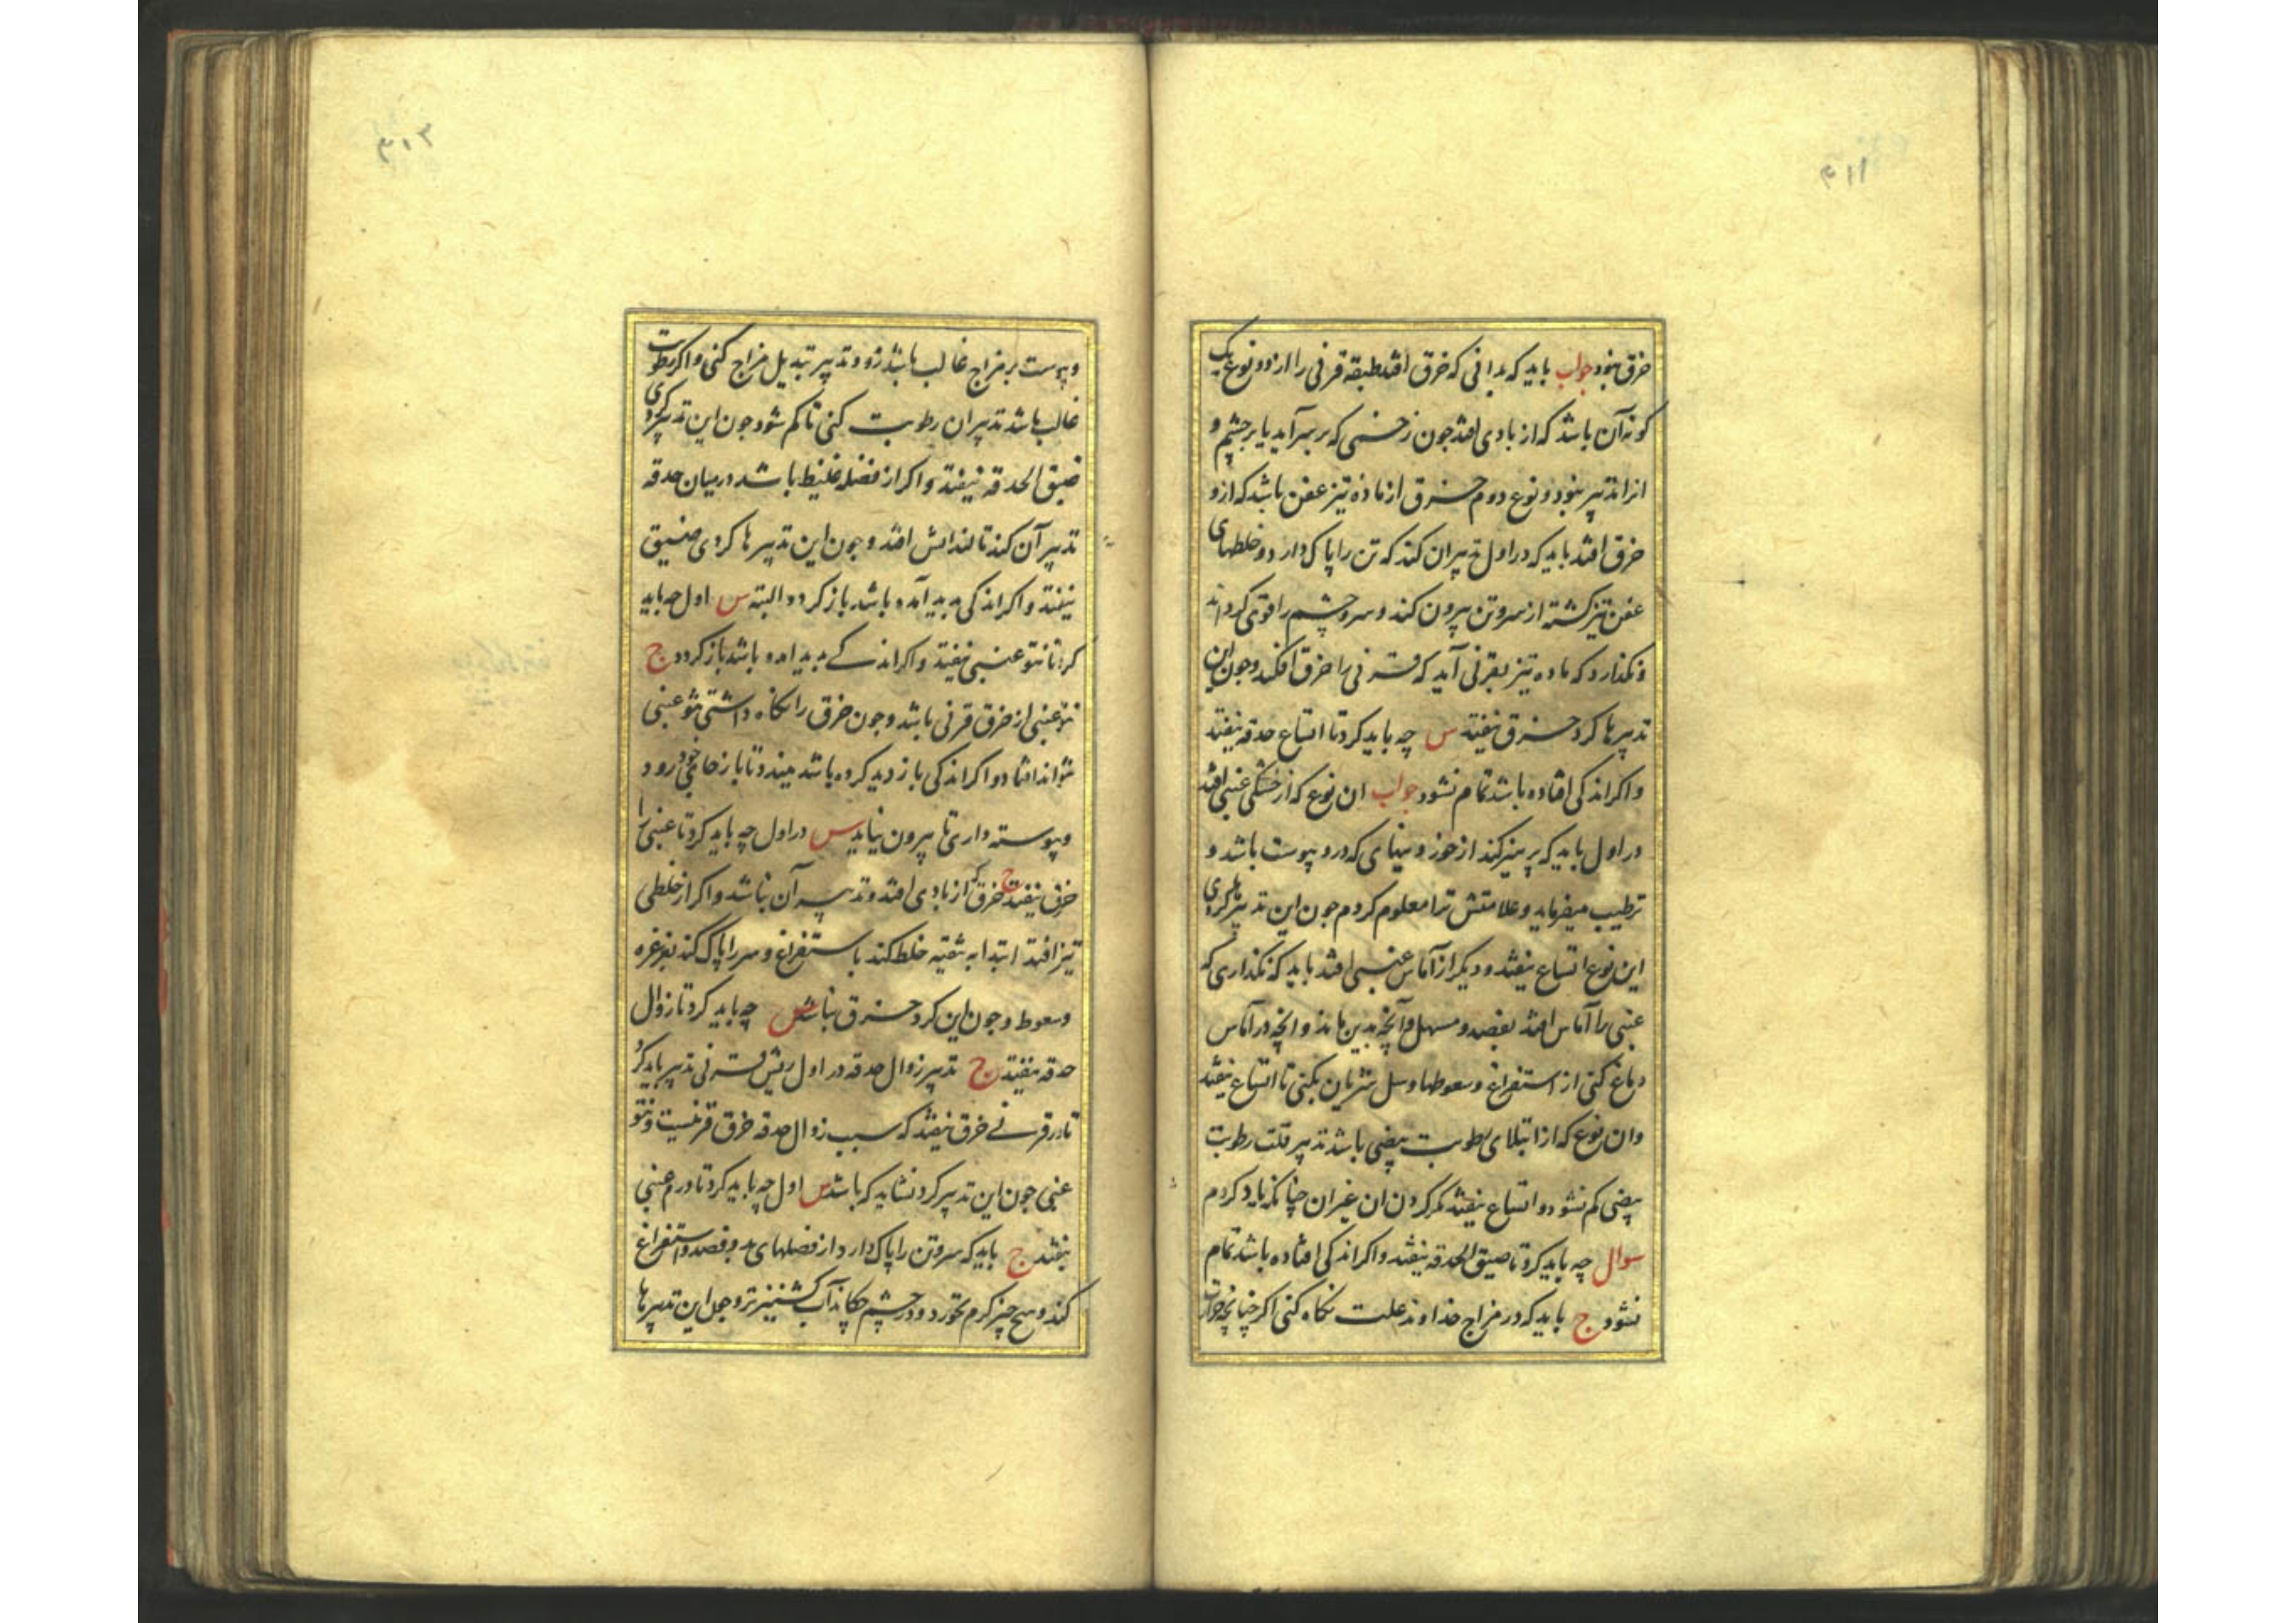 ۳۱۱
خرق نبود جواب باید که بدانی که خرق افتد طبقه قرنی را از دو نوع یک
کونه آن باشد که از بادی افتد جون زخمی که بر سر آید یا بر جشم و
انرا تدبیر نبود و نوع دوم خرق از ماده تیز عفن باشد که ازو
خرق افتد باید که در اول تدبیر ان کند که تن را پاک دارد و خلطهای
عفن تیز کشته از سر و تن بیرون کند و سر و چشم را قوی کرداند
و نکذارد که ماده تیز بقرنی آید که قرنی را خرق افکند و جون این
تدبیرها کرد خرق نیفتد س چه باید کرد تا اتساع حدقه نیفتد
و اکر اندکی افتاده باشد تمام نشود جواب ان نوع که از خشکی عنبی افتد
در اول باید که پرهیز کند از خوز و بینای که درو یبوست باشد و
ترطیب میفرماید و علامتش ترا معلوم کردم جون این تدبیرها کردی
این نوع اتساع نیفتد و دیکر از آماس عنبی افتد باید که نکذاری که
عنبی را آماس افتد بفصد و مسهل و آنچه بدین ماند و انچه در آماس
دماغ کنی از استفراغ و سعوطها و سل شریان بکنی تا اتساع نیفتد
وان نوع که از ابتلای رطوبت بیضی باشد تدبیر قلت رطوبت
بیضی کم نشود و اتساع نیفتد کم کردن ان غیران چنانکه یاد کردم
سوال چه باید کرد تا ضیق الحدقه نیفتد و اکر اندکی افتاده باشد تمام
نشود ج باید که در مزاج خداوند علت نکاه کنی اکر چنانچه حرارت
۳۱۲
و یبوست بر مزاج غالب باشد زود تدبیر تبدیل مزاج کنی و اکر رطوبت
غالب باشد تدبیر ان رطوبت کنی تا کم شود جون این تدبیر کردی
ضیق الحدقه نیفتد و اکر از فضله غلیظ باشد در میان حدقه
تدبیر آن کند تا لندایش افتد و جون این تدبیرها کردی ضیق
نیفتد و اکر اندکی بدید آمده باشد باز کردد البته س اول چه باید
کرد تا نتو عنبی نیفتد و اکر اندکی بدید امده باشد باز کردد ج
نتو عنبی از خرق قرنی باشد و جون خرق را نکاه داشتی نتو عنبی
نتواند افتاد و اکر اندکی بازدید کرده باشد ببندد تا باز جای خود رود
و پیوسته داری تا بیرون نیاید س در اول چه باید کرد تا عنبی را
خرق نیفتد ج خرق که از بادی افتد و تدبیر آن نباشد و اکر از خلطی
تیز افتد ابتدا به تنقیه خلط کند باستفراغ و سر را پاک کند بغرغره
و سعوط و جون این کرد خرق نباشد س چه باید کرد تا زوال
حدقه نیفتد ج تدبیر زوال حدقه در اول ریش قرنی تدبیر باید کرد
تا در قرنی خرق نیفتد که سبب زوال حدقه خرق قرنیست و نتو
عنبی جون این تدبیر کرد نشاید که باشد س اول چه باید کرد تا ورم عنبی
نیفتد ج باید که سر و تن را پاک دارد از فضلهای بد و فصد و استفراغ
کند و هیچ چیز کرم نخورد و در چشم چکاند آب کشنیز تر و جون این تدبیرها